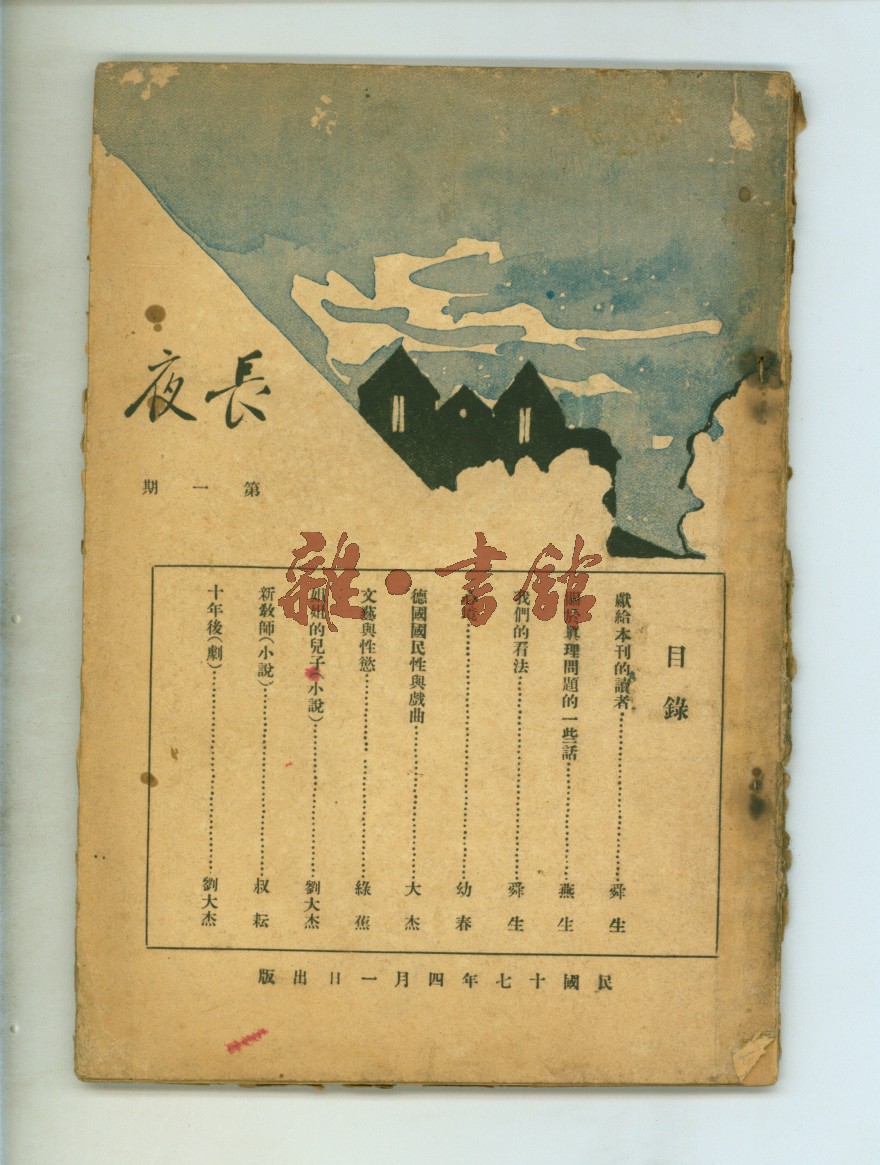 長夜
第一期
雜·書館
目錄
獻給本刊的讀者……舜生
關於真理問題的一些話……燕生
我們的看法……舜生
……幼春
德國國民性與戲曲……大杰
文藝與性慾……綠蕉
姐姐的兒子(小說)……劉大杰
新教師(小說)……叔耘
十年後(劇)……劉大杰
民國十七年四月一日出版